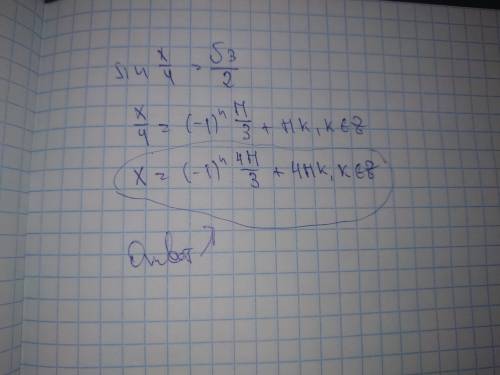 sin x/4 = √3/2
x/4 = (-1)^n π/3 + πk, k∈Z
x = (-1)^n 4π/3 + 4πk, k∈Z
Ответ